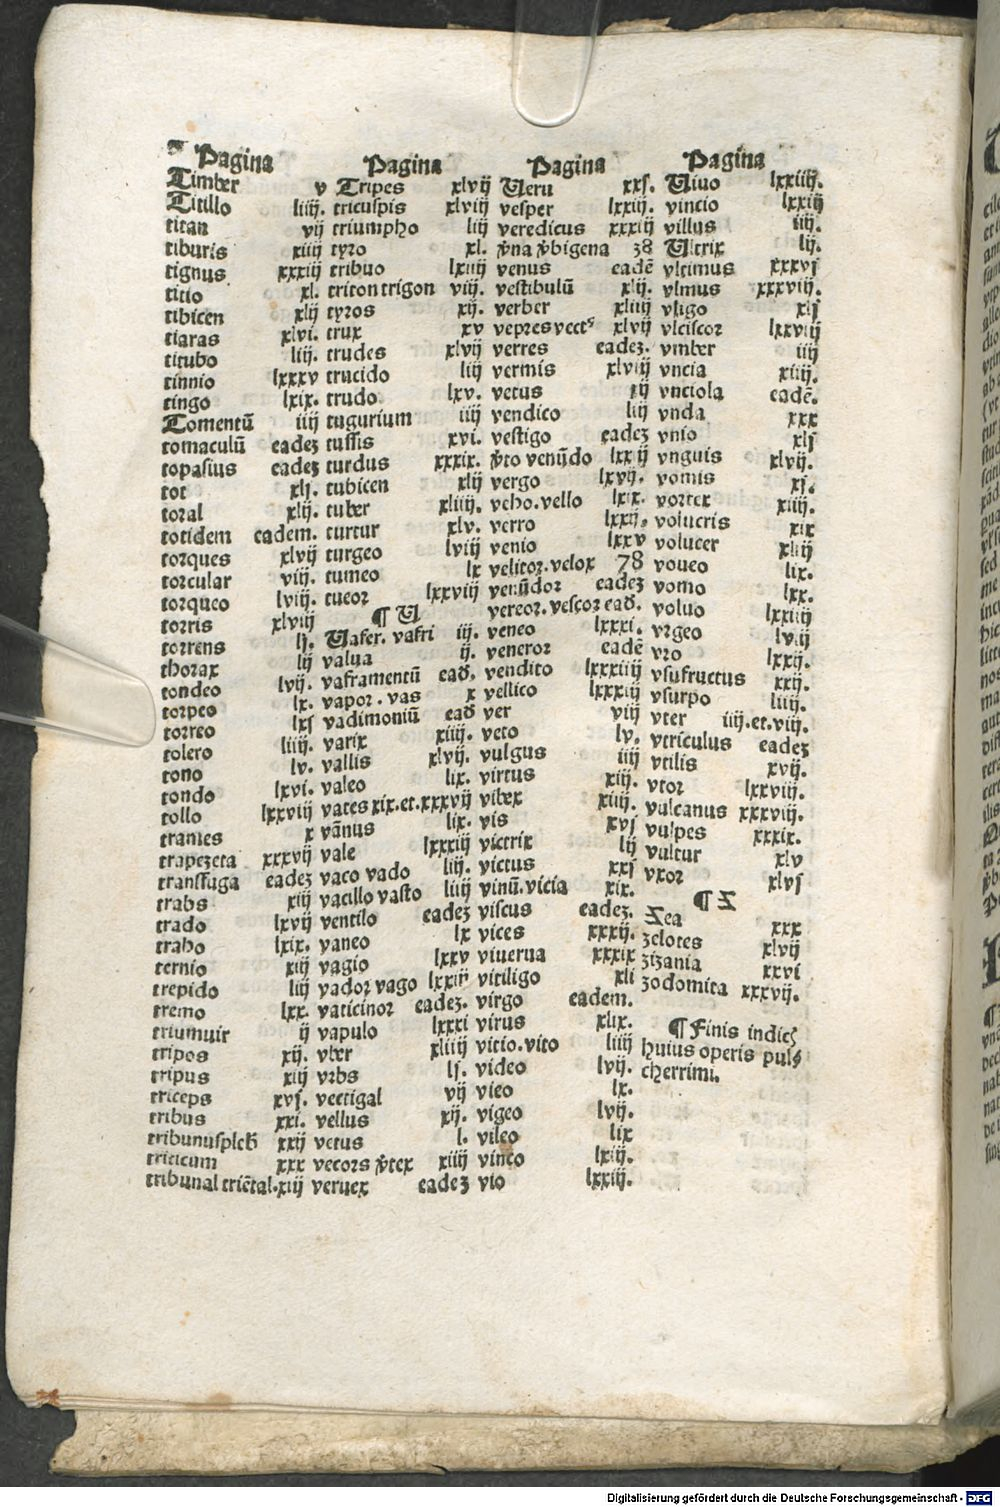 Pagina
Timber v
Titillo liiij.
titan vij
tiburis xiiij
tignus xxxiij
titio xl.
tibicen xlij
tiaras xlvi.
titubo liij.
tinnio lxxxv
tingo lxix.
Tomentū iiij
tomaculū eadeʒ
topasius eadeʒ
tot xlj.
toral xlij.
totidem eadem.
torques xlvij
torcular viij.
torqueo lviij.
torris xlviij
torrens lj.
thorax lij
tondeo lvij.
torpeo lx.
torreo lxj
tolero liiij.
tono lv.
tondo lxvi.
tollo lxxviij
trames x
trapezeta xxxvij
transfuga eadeʒ
trabs xiij
trado lxvij
traho lxix.
ternio xiij
trepido liij
tremo lxx.
triumuir ij
tripos xij.
tripus xiij
triceps xvj.
tribus xxi.
tribunusplebꝭ xxij
triticum xxx
tribunal triētal. xiij
Pagina
Tripes xlvij
tricuspis xlviij
triumpho liij
tyro xl.
tribuo lxiiij
triton trigon viij.
tyros xij.
trux xv
trudes xlvij
trucido liij
trudo lxv.
tugurium iiij
tussis xvi.
turdus xxxix.
tubicen xlij
tuber xliiij.
turtur xlv.
turgeo lviij
tumeo lx
tueor lxxviij
¶ U
Uafer. vafri iij.
valua ij.
vaframentū eaď.
vapor. vas x
vadimoniū eaď
varix xiiij.
vallis xlvij.
valeo lix.
vates xix.et.xxxvij
vānus lix.
vale lxxxiij
vaco vado liij.
vacillo vasto liiij
ventilo eadeʒ
vaneo lx
vagio lxxv
vador vago lxxiij
vaticinor eadeʒ.
vapulo lxxxi
vber xliiij
vrbs lj.
vectigal vij
vellus xij.
vetus l.
vecors v̓tex xiiij
veruex eadeʒ
Pagina
Ueru xxj.
vesper lxxiij.
veredicus xxxiij
v̓na v̓bigena 38
venus eadē
vestibulū xij.
verber xliiij
vepres vect⁹ xlvij
verres eadeʒ.
vermis xlviij
vetus xij
vendico lij
vestigo eadeʒ
v̓to venūdo lxxij
vergo lxvij.
veho.vello lxix.
verro lxxij.
venio lxxv
velitor.velox 78
venūdor eadeʒ
vereor.vescor eaď.
veneo lxxxi.
veneror eadē
vendito lxxxiiij
vellico lxxxiij
ver viij
veto lv.
vulgus iiij
virtus xiij.
vibex xiiij.
vis xvj
victrix lij
victus xxj
vinū.vicia xix.
viscus eadeʒ.
vices xxxij.
viuerua xxxix
vitiligo xli
virgo eadem.
virus xlix.
vitio.vito liiij
video lvij.
vieo lx.
vigeo lvij.
vileo lix
vinco lxiij.
vio lxxiij.
Pagina
Uiuo lxxiiij.
vincio lxxiij
villus iiij.
Ultrix lij.
vltimus xxxvj
vlmus xxxviij.
vligo xlj
vlciscor lxxviij
vmber iiij
vncia xiiij.
vnciola eadē.
vnda xxx
vnio xlj
vnguis xlvij.
vomis xj.
vortex xiiij.
volucris xix
volucer xliij
voueo lix.
vomo lxx.
voluo lxxiiij
vrgeo lviij
vro lxxij.
vsufructus xxij.
vsurpo liiij.
vter iiij.et.viij.
vtriculus eadeʒ
vtilis xvij.
vtor lxxviij.
vulcanus xxxviij.
vulpes xxxix.
vultur xlv
vxor xlvj
¶ Z
Zea xxx
zelotes xlvij
zizania xxvi
zodomita xxxvij.
¶ Finis indicꝭ
huius operis pul⸗
cherrimi.
Digitalisierung gefördert durch die Deutsche Forschungsgemeinschaft - DFG